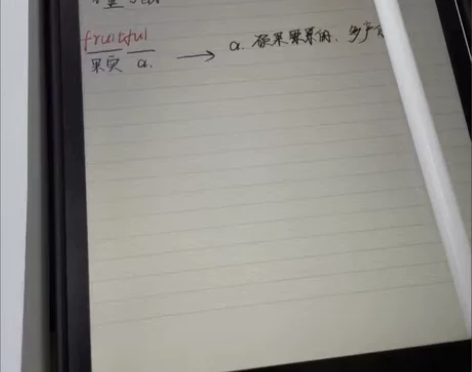 fruitful
果实 a. → a. 硕果累累的、多产